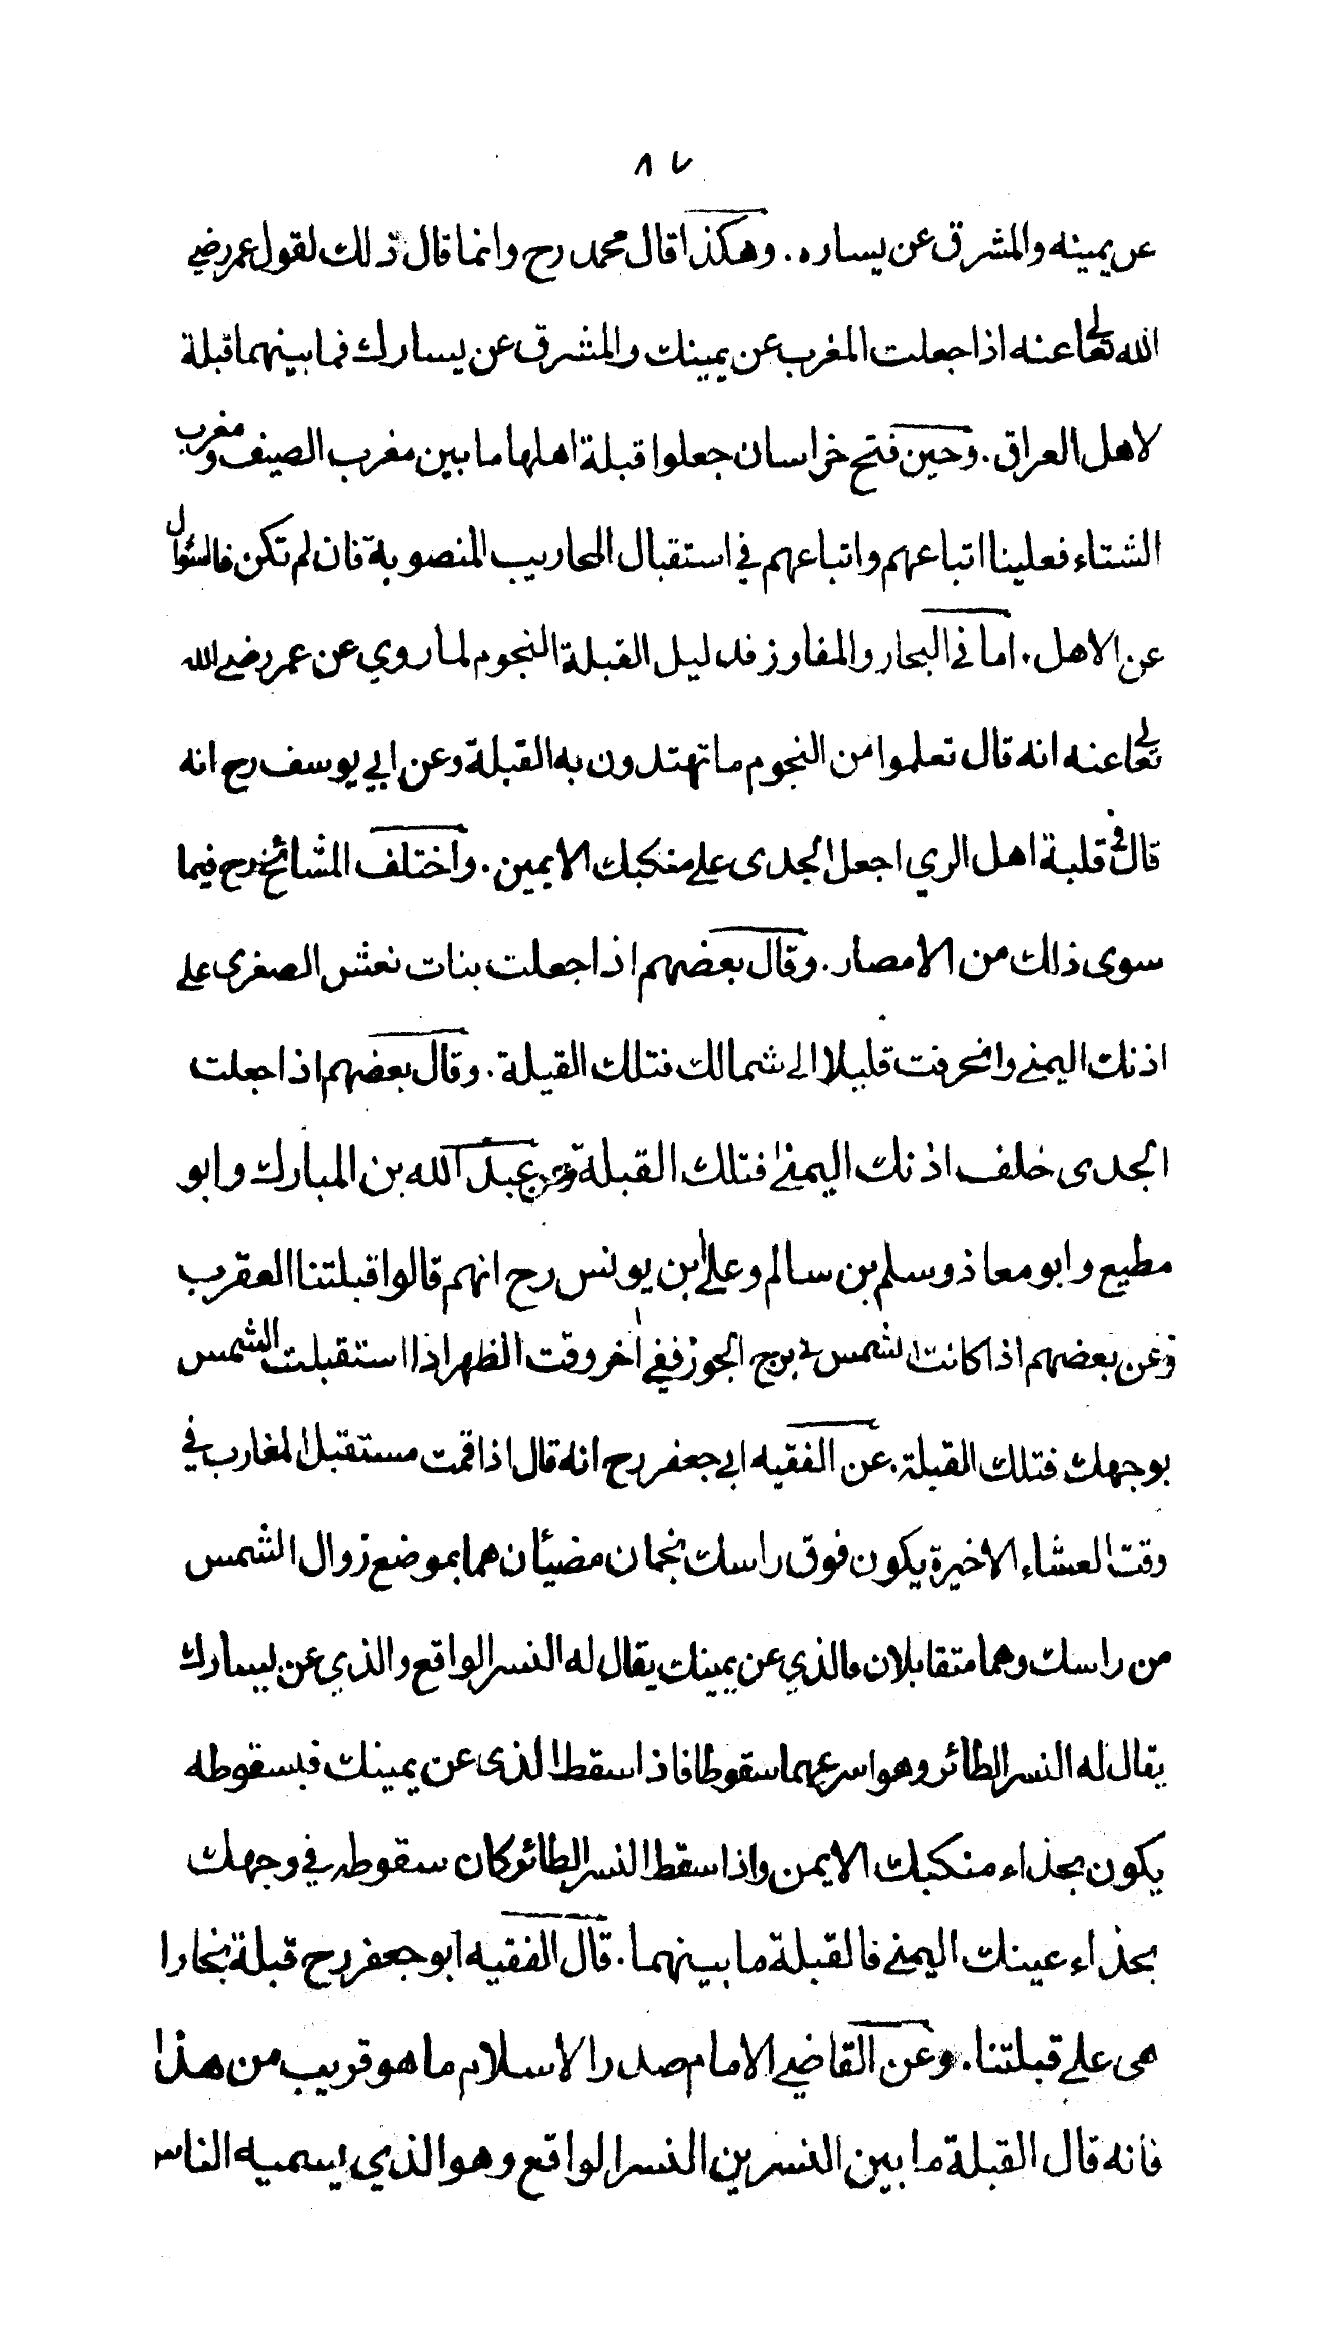 ٨٧
عن يمينه والمشرق عن يساره. وهكذا قال محمد رح وانما قال ذلك لقول عمر رضي
الله تعالى عنه اذا جعلت المغرب عن يمينك والمشرق عن يسارك فما بينهما قبلة
لاهل العراق. وحين فتح خراسان جعلوا قبلة اهلها ما بين مغرب الصيف ومغرب
الشتاء فعلينا اتباعهم واتباعهم في استقبال المحاريب المنصوبة فان لم تكن فالسئوال
عن الاهل. اما في البحار والمفاوز فدليل القبلة النجوم لما روي عن عمر رضي الله
تعالى عنه انه قال تعلموا من النجوم ما تهتدون به القبلة وعن ابي يوسف رح انه
قال في قلبة اهل الري اجعل الجدى على منكبك الايمين. واختلف المشائخ رح فيما
سوى ذلك من الامصار. وقال بعضهم اذا جعلت بنات نعش الصغرى على
اذنك اليمنى وانحرفت قليلا الى شمالك فتلك القيلة. وقال بعضهم اذا جعلت
الجدى خلف اذنك اليمنى فتلك القبلة وعن عبد الله بن المبارك وابو
مطيع وابو معاذ وسلم بن سالم وعلى ابن يونس رح انهم قالوا قبلتنا العقرب
وعن بعضهم اذا كانت الشمس في برج الجوز ففي اخر وقت الظهر اذا استقبلت الشمس
بوجهك فتلك القبلة. عن الفقيه ابي جعفر رح انه قال اذا قمت مستقبل المغارب في
وقت العشاء الاخيرة يكون فوق راسك نجمان مضيئان هما بموضع زوال الشمس
من راسك وهما متقابلان فالذي عن يمينك يقال له النسر الواقع والذي عن يسارك
يقال له النسر الطائر وهو اسرعهما سقوطا فاذا سقط الذى عن يمينك فبسقوطه
يكون بحذاء منكبك الايمن واذا سقط النسر الطائر كان سقوطه في وجهك
بحذاء عينك اليمنى فالقبلة ما بينهما. قال الفقيه ابو جعفر رح قبلة بخارا
هى على قبلتنا. وعن القاضي الامام صدر الاسلام ما هو قريب من هذا
فانه قال القبلة ما بين النسرين النسر الواقع وهو الذي يسميه الناس